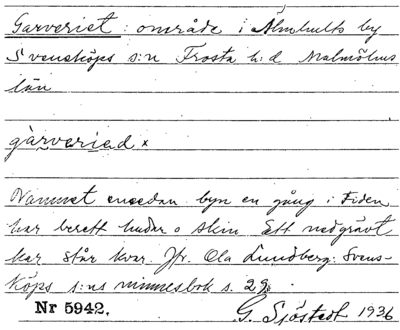 Garveriet : område i Älmhults by
Svensköps s:n Frosta h:d Malmöhus
län
gàrveriad x
Namnet emedan byn en gång i tiden
har berett hudar o skinn. Ett nedgrävt
kar står kvar. Jfr. Ola Lundberg: Svens-
köps s:ns minnesbok s. 29.
Nr 5942.
G. Sjöstedt 1936